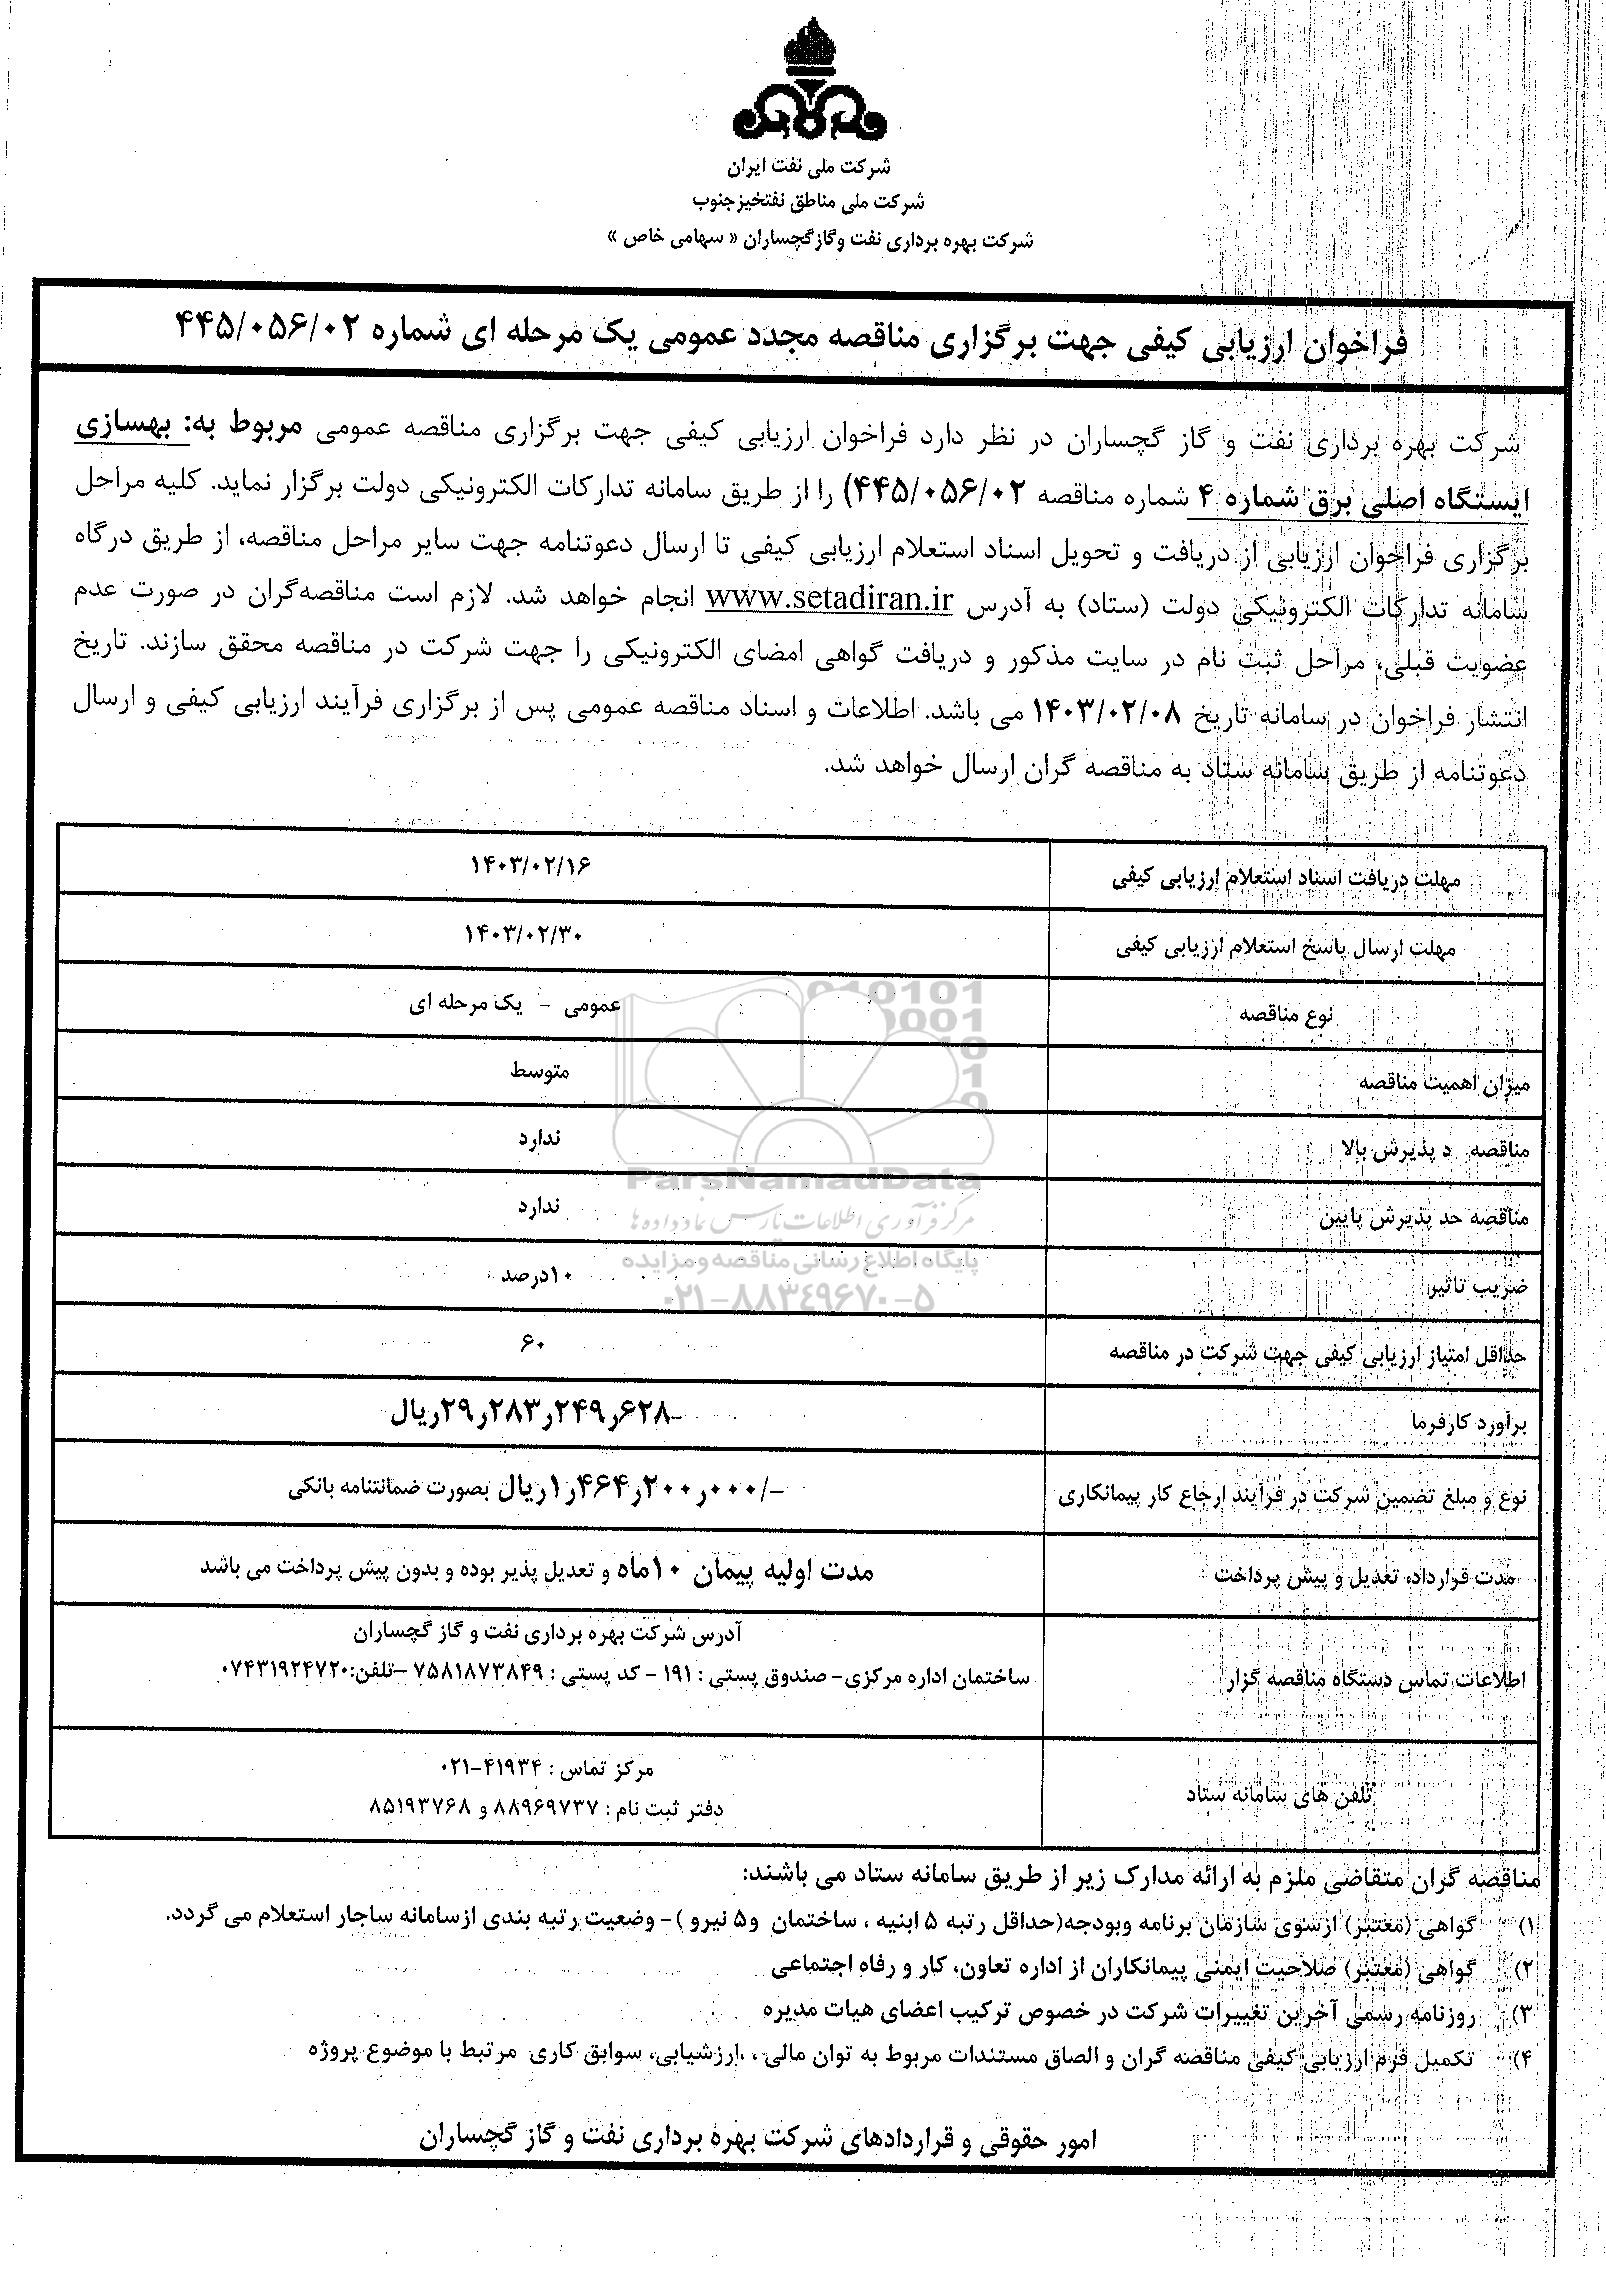 شرکت ملی نفت ایران
شرکت ملی مناطق نفتخیزجنوب
شرکت بهره برداری نفت وگازگچساران « سهامی خاص »
فراخوان ارزیابی کیفی جهت برگزاری مناقصه مجدد عمومی یک مرحله ای شماره ۴۴۵/۰۵۶/۰۲
شرکت بهره برداری نفت و گاز گچساران در نظر دارد فراخوان ارزیابی کیفی جهت برگزاری مناقصه عمومی مربوط به: بهسازی
ایستگاه اصلی برق شماره ۴ شماره مناقصه ۴۴۵/۰۵۶/۰۲) را از طریق سامانه تدارکات الکترونیکی دولت برگزار نماید. کلیه مراحل
برگزاری فراخوان ارزیابی از دریافت و تحویل اسناد استعلام ارزیابی کیفی تا ارسال دعوتنامه جهت سایر مراحل مناقصه، از طریق درگاه
سامانه تدارکات الکترونیکی دولت (ستاد) به آدرس www.setadiran.ir انجام خواهد شد. لازم است مناقصه‌گران در صورت عدم
عضویت قبلی، مراحل ثبت نام در سایت مذکور و دریافت گواهی امضای الکترونیکی را جهت شرکت در مناقصه محقق سازند. تاریخ
انتشار فراخوان در سامانه تاریخ ۱۴۰۳/۰۲/۰۸ می باشد. اطلاعات و اسناد مناقصه عمومی پس از برگزاری فرآیند ارزیابی کیفی و ارسال
دعوتنامه از طریق سامانه ستاد به مناقصه گران ارسال خواهد شد.
مهلت دریافت اسناد استعلام ارزیابی کیفی ۱۴۰۳/۰۲/۱۶
مهلت ارسال پاسخ استعلام ارزیابی کیفی ۱۴۰۳/۰۲/۳۰
نوع مناقصه عمومی - یک مرحله ای
میزان اهمیت مناقصه متوسط
مناقصه د پذیرش بالا ندارد
مناقصه حد پذیرش پایین ندارد
ضریب تاثیر ۱۰درصد
حداقل امتیاز ارزیابی کیفی جهت شرکت در مناقصه ۶۰
برآورد کارفرما -۲۹ر۲۸۳ر۲۴۹ر۶۲۸ریال
نوع و مبلغ تضمین شرکت در فرآیند ارجاع کار پیمانکاری -/۱ر۴۶۴ر۲۰۰ر۰۰۰ریال بصورت ضمانتنامه بانکی
مدت قرارداد، تعدیل و پیش پرداخت مدت اولیه پیمان ۱۰ماه و تعدیل پذیر بوده و بدون پیش پرداخت می باشد
آدرس شرکت بهره برداری نفت و گاز گچساران
اطلاعات تماس دستگاه مناقصه گزار ساختمان اداره مرکزی- صندوق پستی : ۱۹۱ - کد پستی : ۷۵۸۱۸۷۳۸۴۹ –تلفن:۰۷۴۳۱۹۲۴۷۲۰
مرکز تماس : ۴۱۹۳۴-۰۲۱
تلفن های سامانه ستاد
دفتر ثبت نام : ۸۸۹۶۹۷۳۷ و ۸۵۱۹۳۷۶۸
مناقصه گران متقاضی ملزم به ارائه مدارک زیر از طریق سامانه ستاد می باشند:
۱) گواهی (معتبر) ازسوی سازمان برنامه وبودجه(حداقل رتبه ۵ ابنیه ، ساختمان و۵ نیرو )- وضعیت رتبه بندی ازسامانه ساجار استعلام می گردد.
۲) گواهی (معتبر) صلاحیت ایمنی پیمانکاران از اداره تعاون، کار و رفاه اجتماعی
۳) روزنامه رسمی آخرین تغییرات شرکت در خصوص ترکیب اعضای هیات مدیره
۴) تکمیل فرم ارزیابی کیفی مناقصه گران و الصاق مستندات مربوط به توان مالی ، ،ارزشیابی، سوابق کاری مرتبط با موضوع پروژه
امور حقوقی و قراردادهای شرکت بهره برداری نفت و گاز گچساران
ParsNamadData
مرکز فرآوری اطلاعات پارس نماد داده ها
پایگاه اطلاع رسانی مناقصه و مزایده
۰۲۱-۸۸۳۴۹۶۷۰-۵